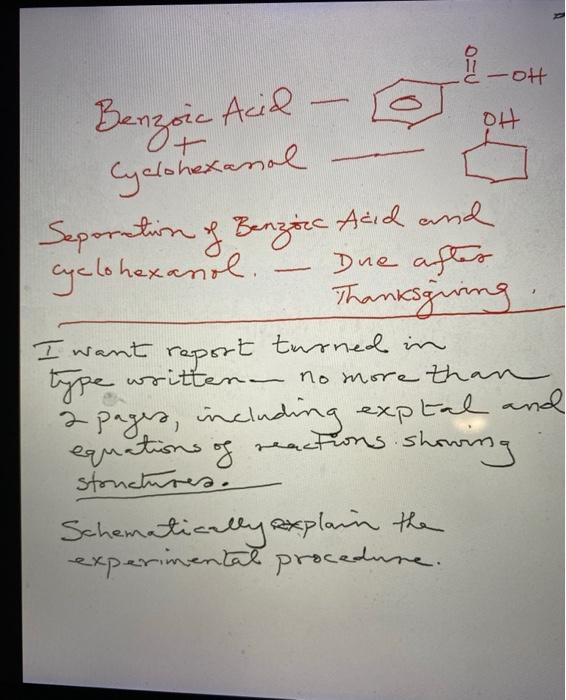 Benzoic Acid —
O
C - OH
+
OH
Cyclohexanol —
Separation of Benzoic Acid and
cyclohexanol. — Due after
Thanksgiving.
I want report turned in
type written — no more than
2 pages, including exptal and
equations of reactions showing
structures.
Schematically explain the
experimental procedure.